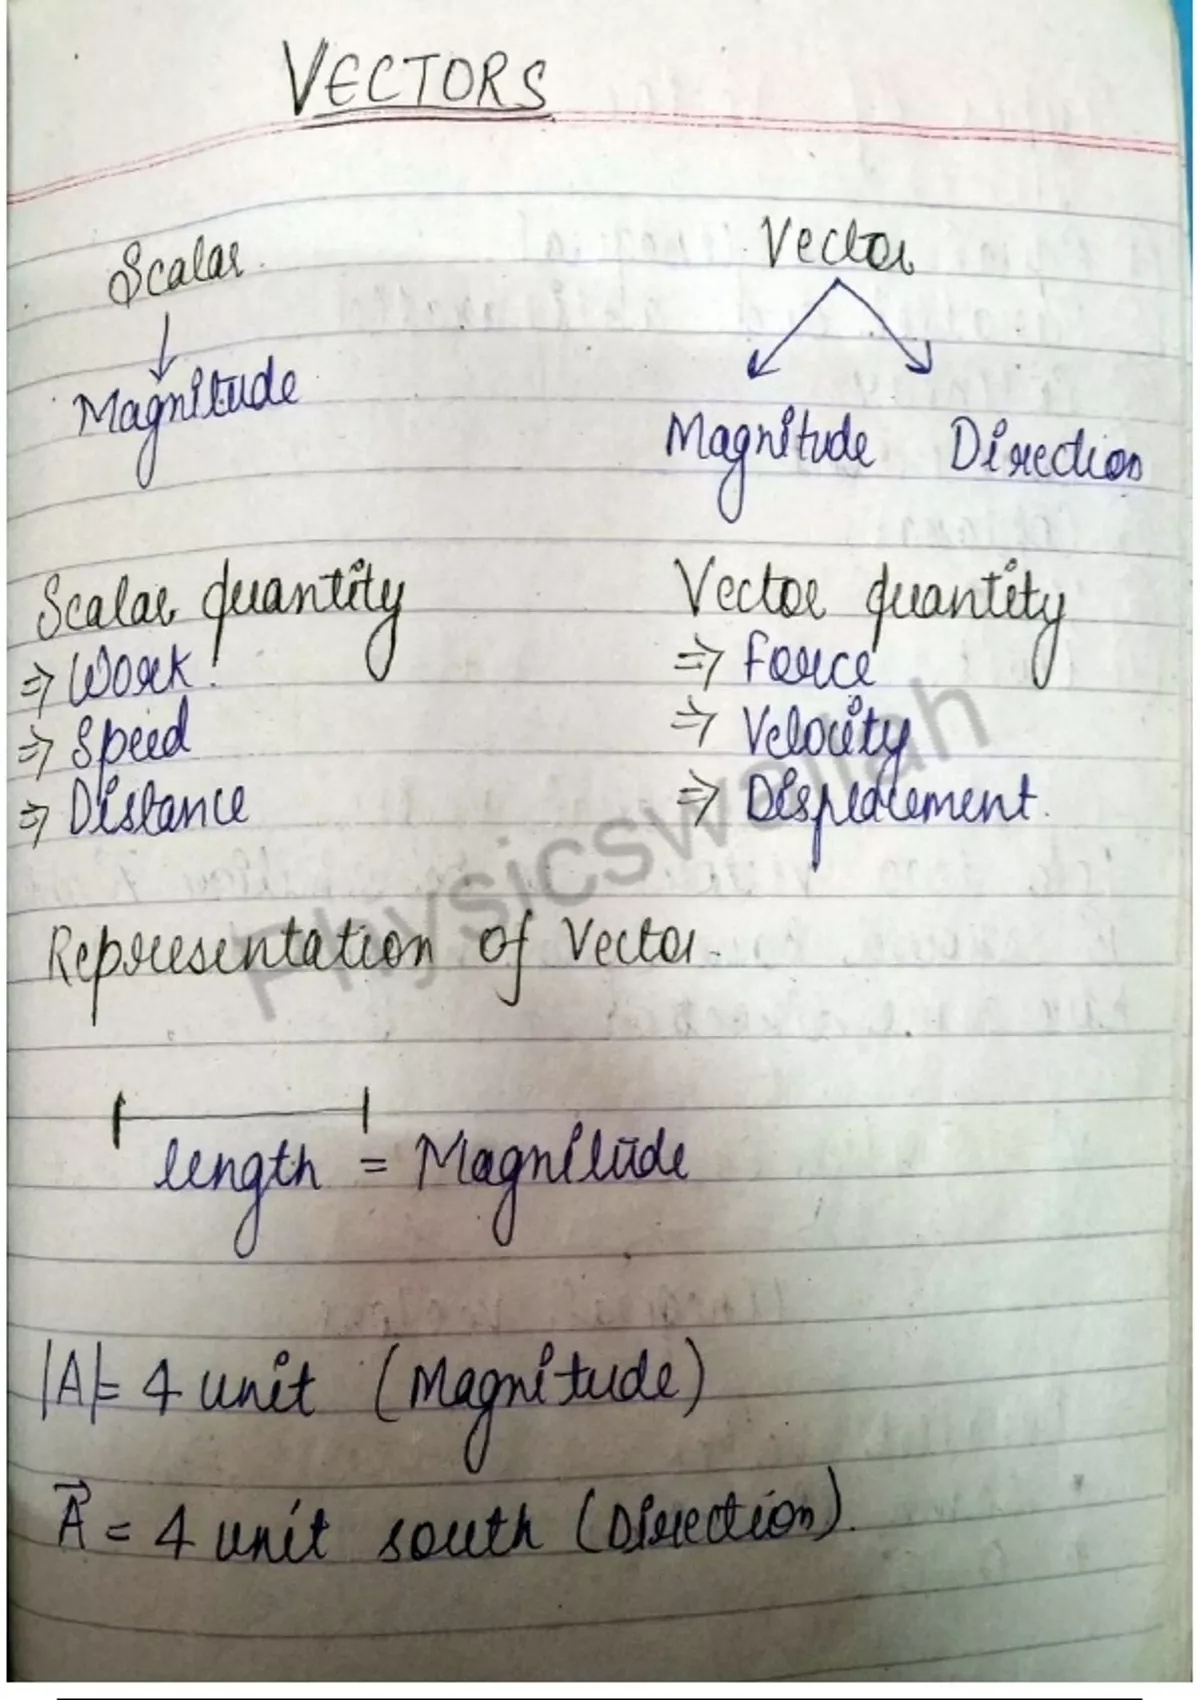 VECTORS
Scalar
Vector
Magnitude
Magnitude Direction
Scalar quantity
Vector quantity
⇒ Work
⇒ Force
⇒ Speed
⇒ Velocity
⇒ Distance
⇒ Displacement.
Physicswallah
Representation of Vector.
length = Magnitude
|A|= 4 unit (Magnitude)
A⃗ = 4 unit south (Direction).